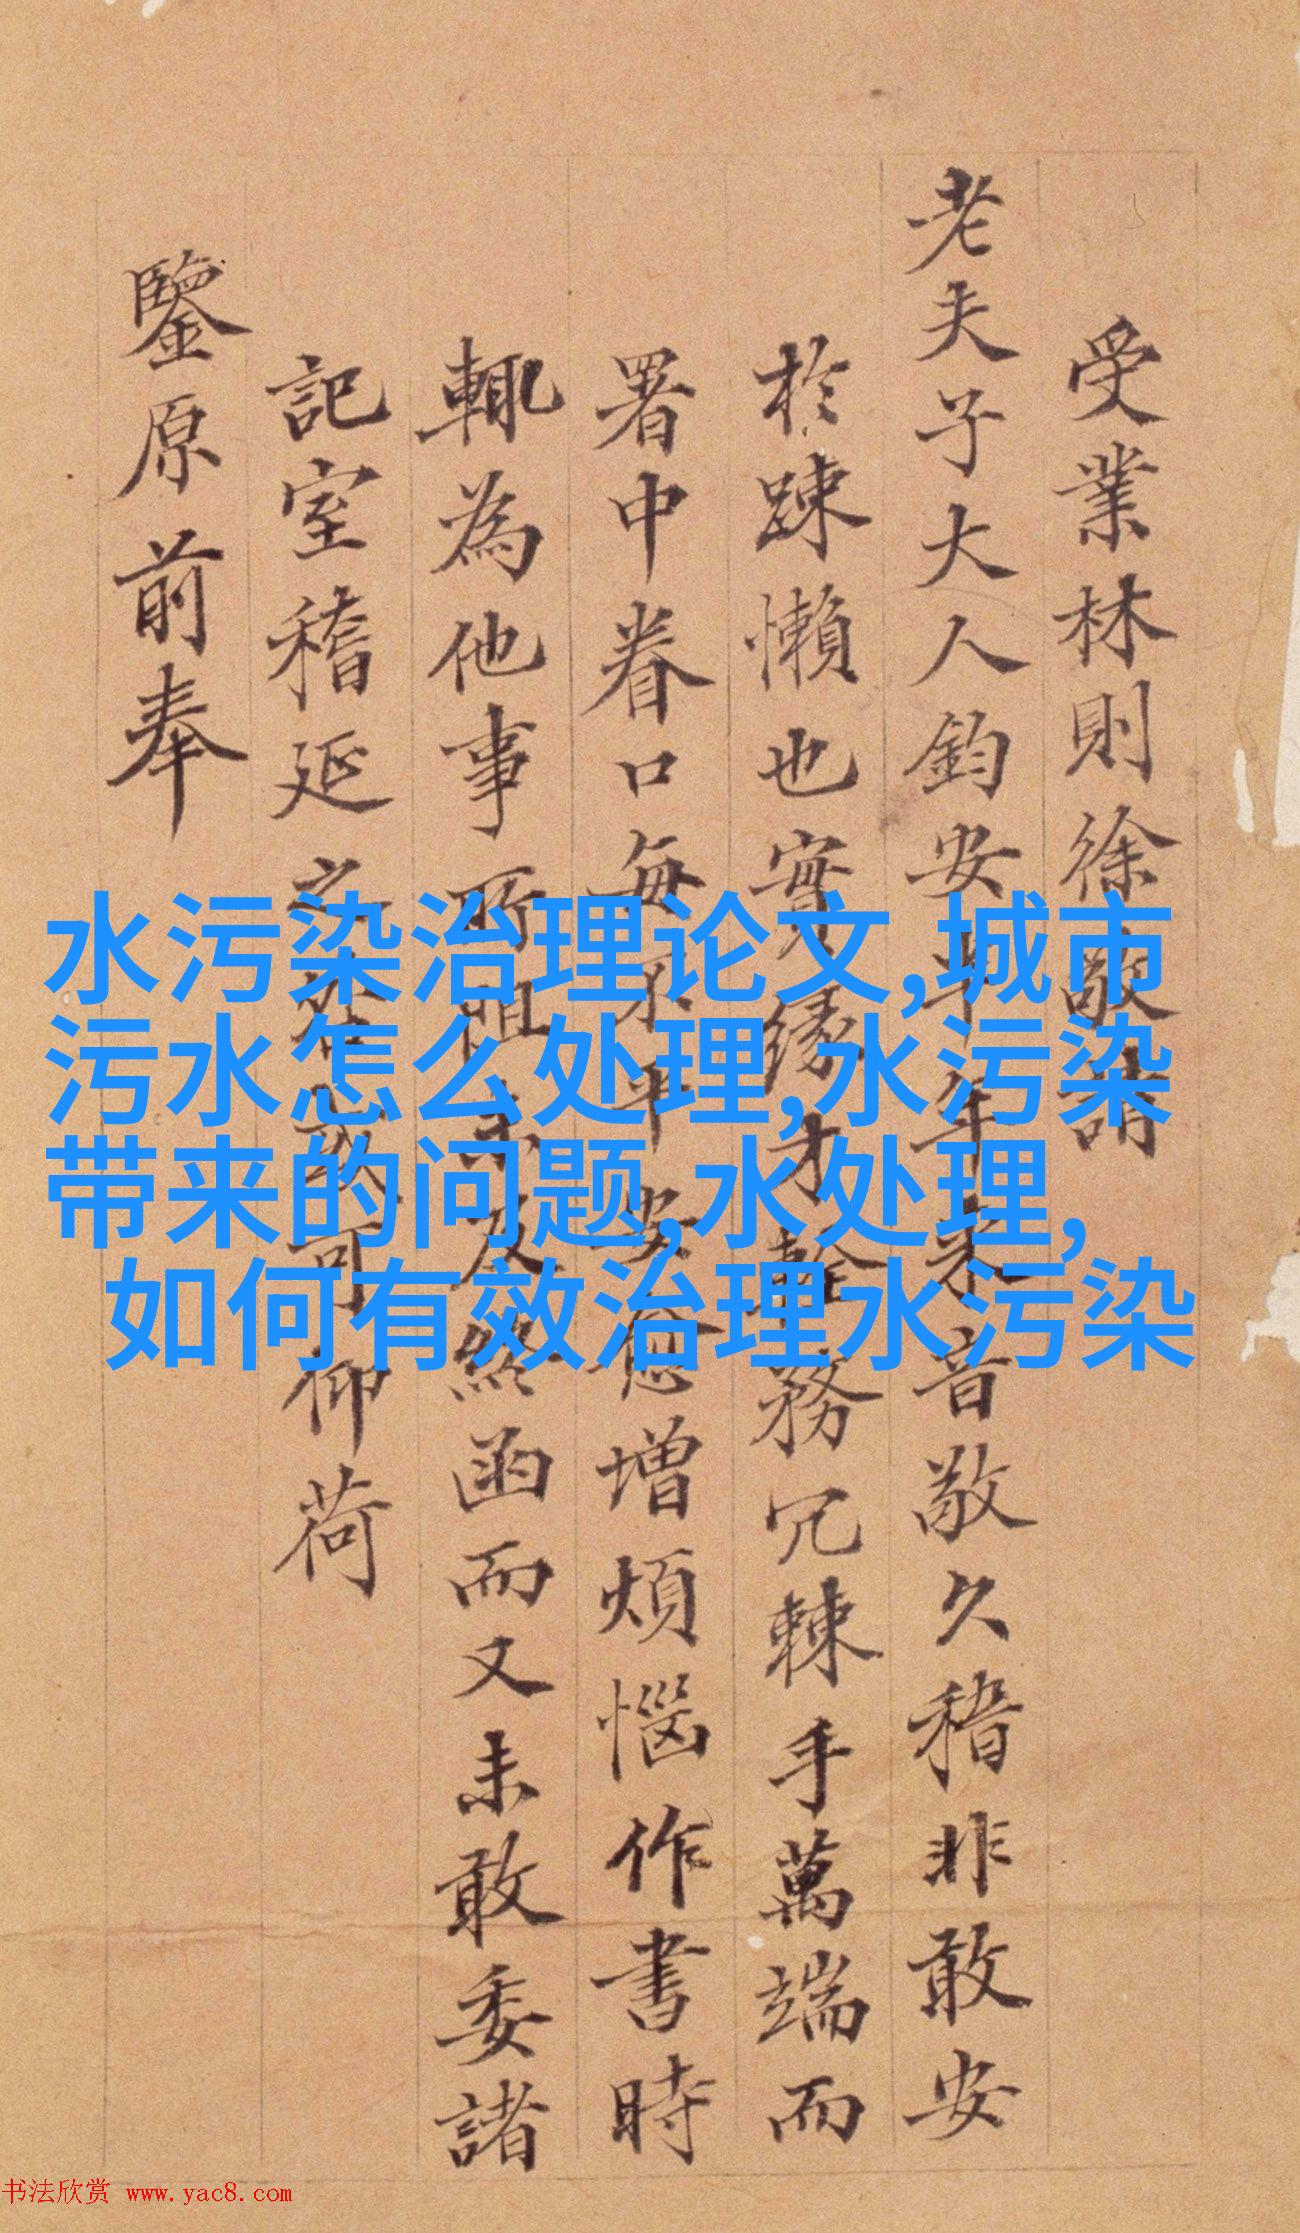 受業林則徐敬請
老夫子大人鈞安半年來音敬久稽非敢安
於踈懶也實緣才輇務冗棘手萬端而
署中眷口每不平安愈增煩惱作書時
輙為他事所阻未及終函而又未敢委諸
記室稽延之可仰荷
鑒原前奉
水污染治理论文,城市
污水怎么处理,水污染
带来的问题,水处理,
如何有效治理水污染
书法欣赏 www.yac8.com